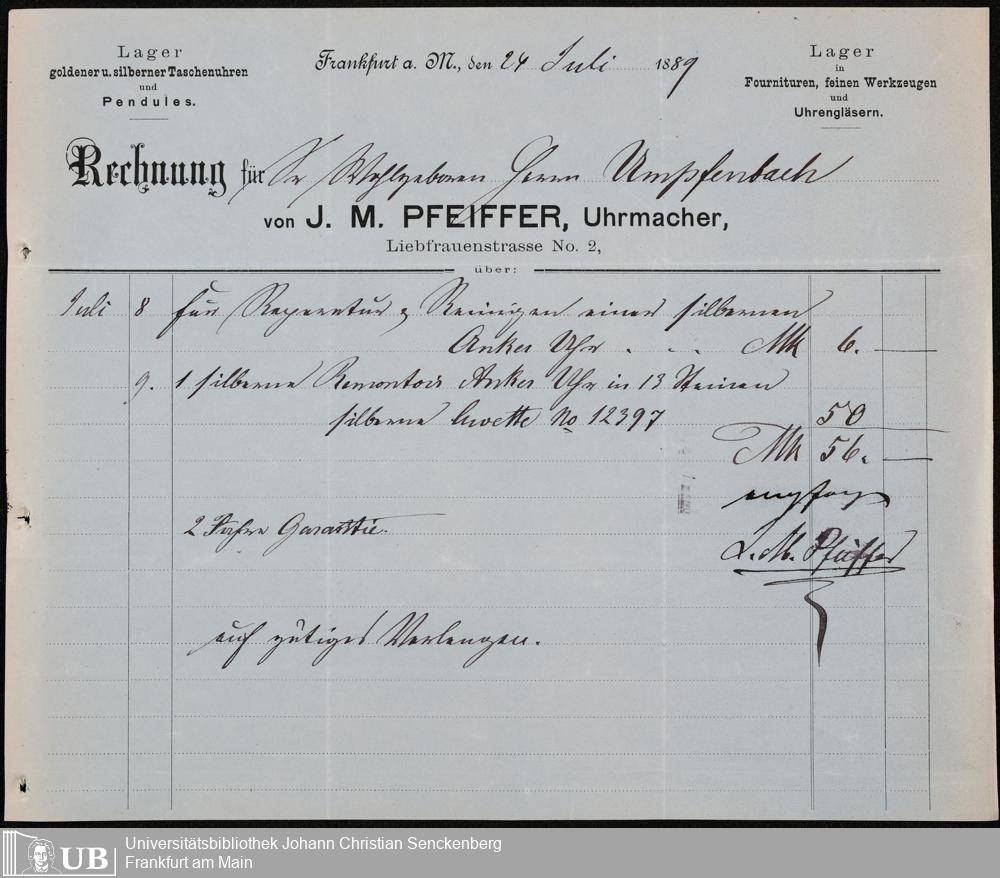 Lager
goldener u. silberner Taschenuhren
und
Pendules.
Frankfurt a. M., den 24 Juli 1889
Lager
in
Fournituren, feinen Werkzeugen
und
Uhrengläsern.
Rechnung für Sr Wohlgeboren Herrn Umpfenbach
von J. M. PFEIFFER, Uhrmacher,
Liebfrauenstrasse No. 2,
über:
Juli 8 für Reperatur & Reinigen einer silbernen
Anker Uhr . . . Mk 6. —
9. 1 silberne Remontoir Anker Uhr in 13 Steinen
silberne Cuvette No 12397 50
Mk 56. —
empfangen
2 Jahre Garantie.
J. M. Pfeiffer
auf gütiges Verlangen.
Universitätsbibliothek Johann Christian Senckenberg
Frankfurt am Main
UB